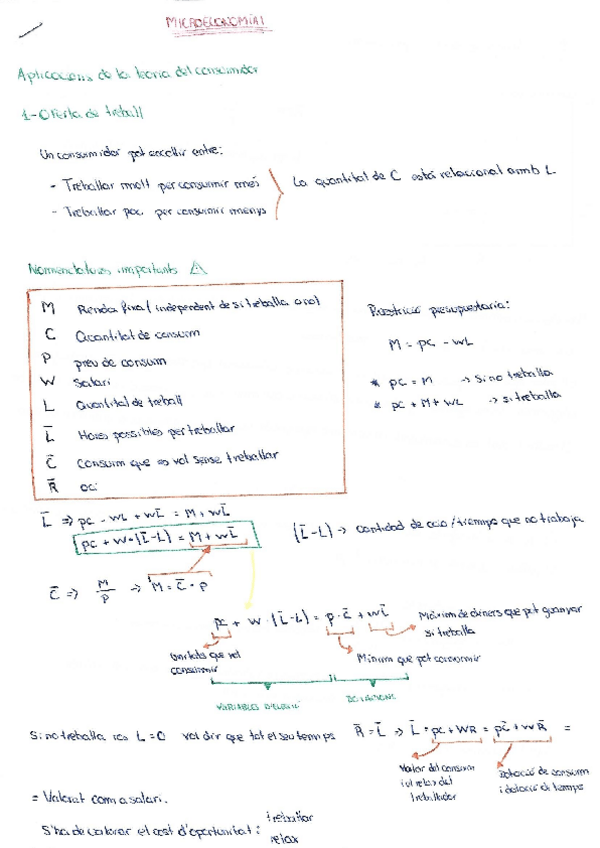 MICROECONOMIA I
Aplicacions de la teoria del consumidor
1-Oferta de treball
Un consumidor pot escollir entre:
- Treballar molt per consumir més
- Treballar poc per consumir menys
La quantitat de C està relacionat amb L
Nomenclatures importants ⚠
M Renda final independent de si treballa o no
C Quantitat de consum
P preu de consum
W Salari
L Quantitat de treball
L̄ Hores possibles per treballar
C̄ Consum que es vol sense treballar
R̄ oci
Restricció pressupostaria:
M = pC - WL
* pC = M → Si no treballa
* pC + M + WL → si treballa
L̄ => pC - WL + WL̄ = M + WL̄
pC + W·(L̄-L) = M + WL̄
(L̄-L) → cantidad de ocio/tiempo que no trabaja
C̄ => M/P → M = C̄·P
pC + W·(L̄-L) = p·C̄ + WL̄
Màxim de diners que pot guanyar
si treballa
que vol
consumir
Mínim que pot consumir
VARIABLES D'ELECCIÓ
DOTACIONS
Si no treballa L=0 vol dir que tot el seu temps R̄=L̄ => L̄ = pC+WR = pC̄+WR̄ =
Valor del consum
i el relax del
treballador
Dotació de consum
i dotació de temps
= Valorat com a salari.
S'ha de valorar el cost d'oportunitat:
treballar
relax